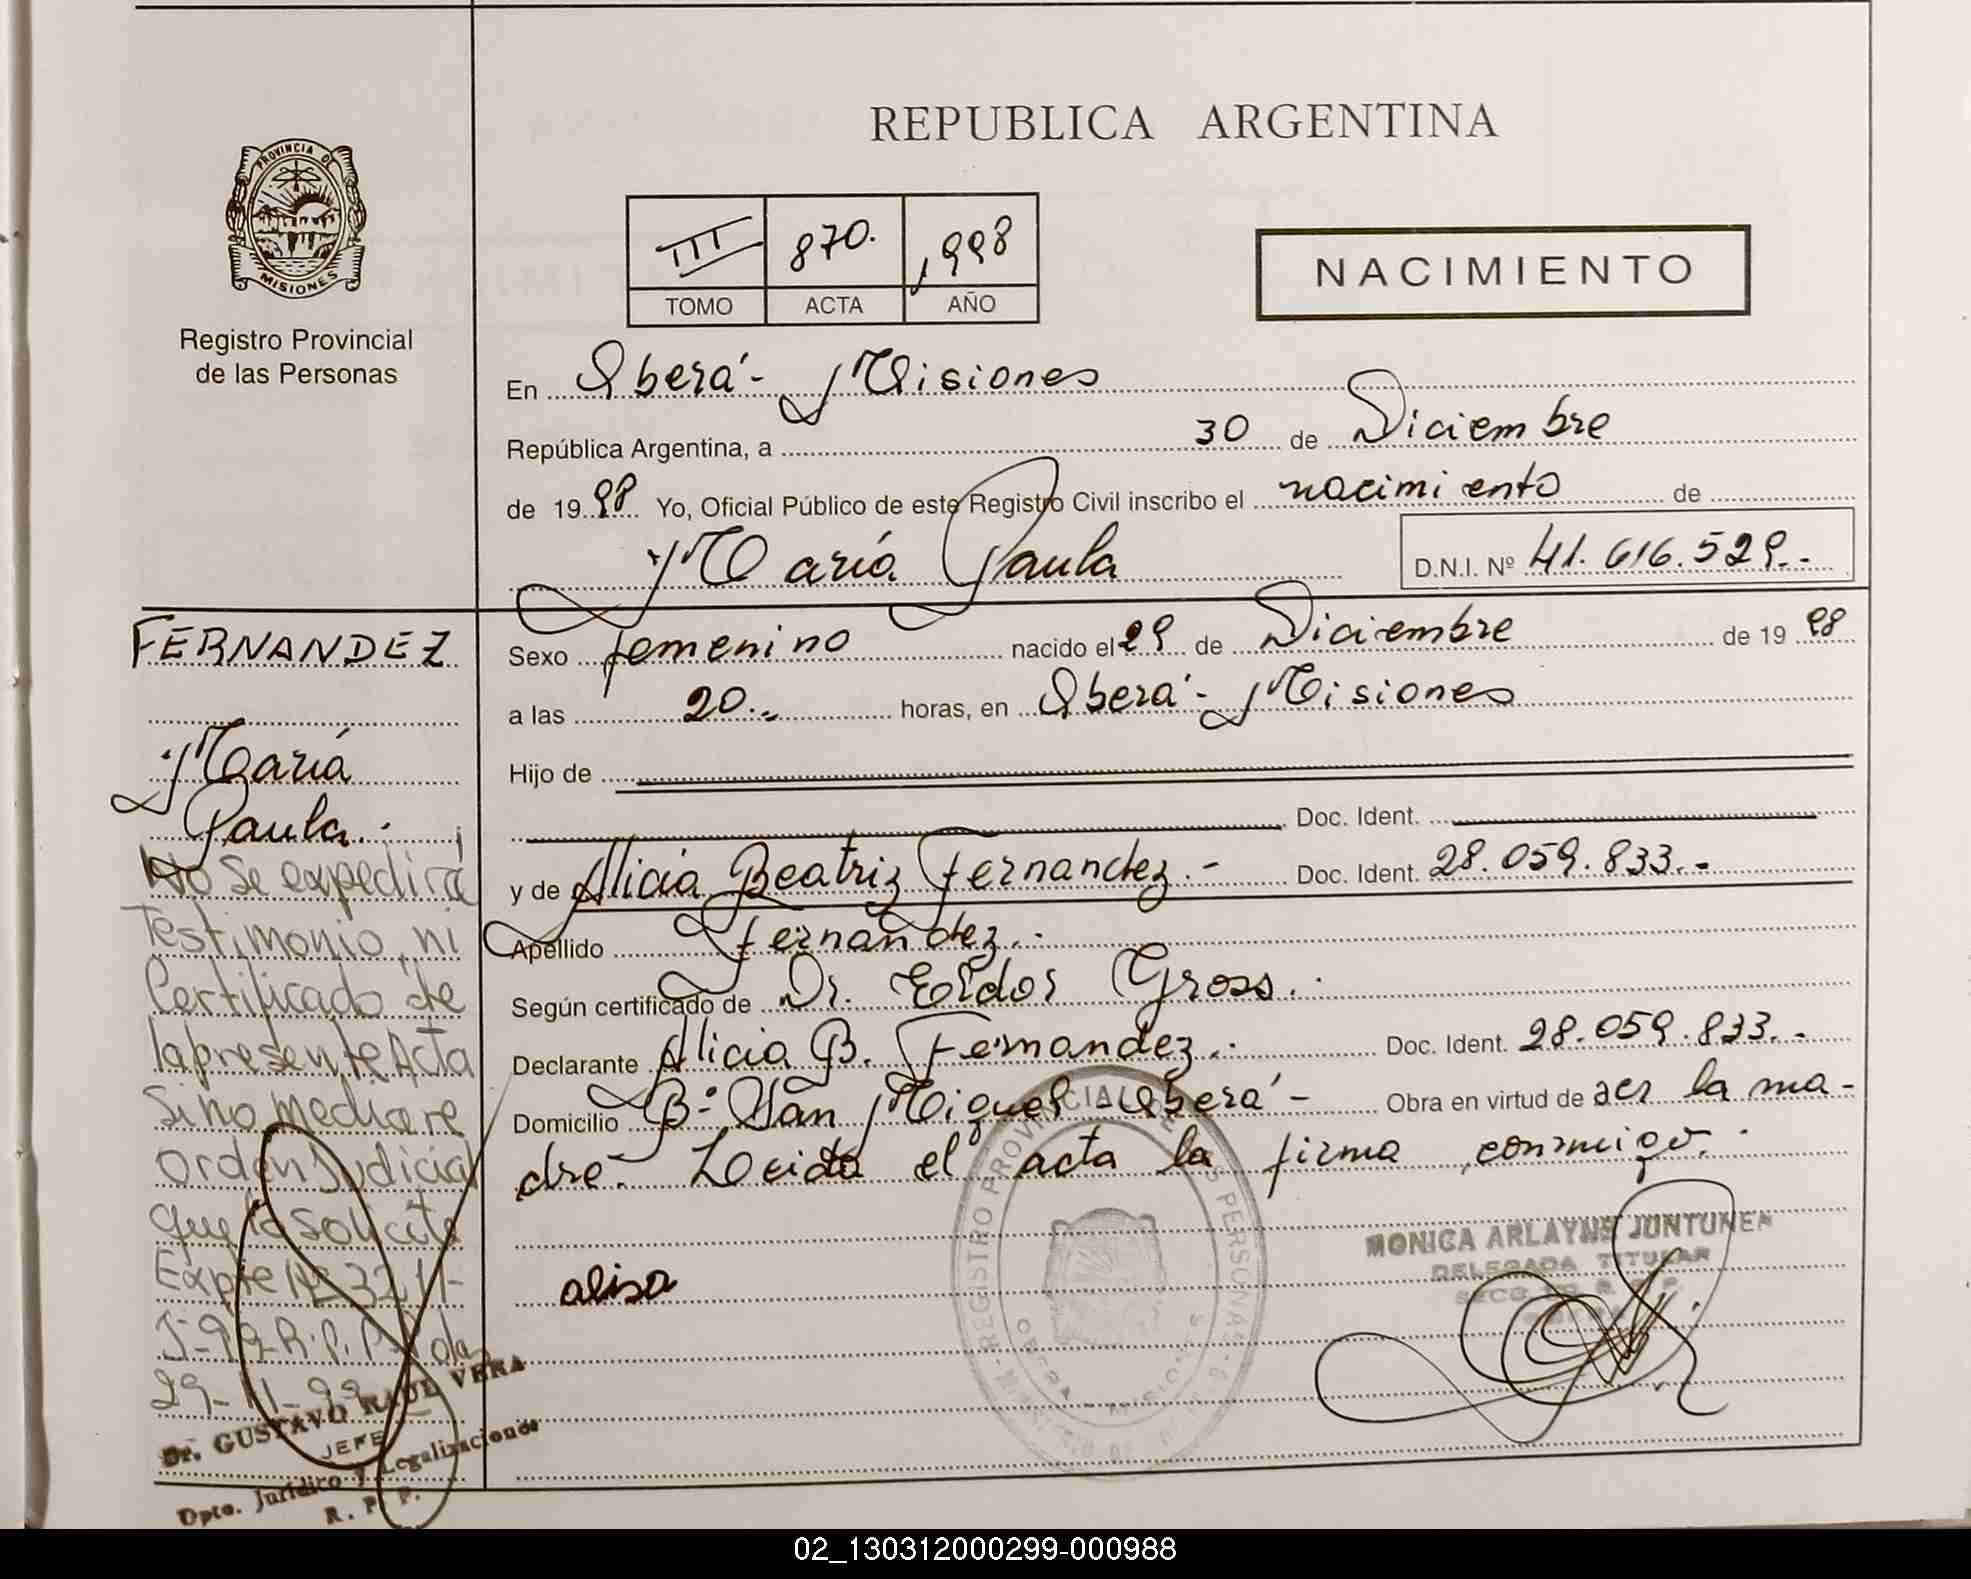 REPUBLICA ARGENTINA
PROVINCIA DE
MISIONES
Registro Provincial
de las Personas
III 870. 1998
TOMO ACTA AÑO
NACIMIENTO
En Oberá - Misiones
República Argentina, a 30 de Diciembre
de 1998 Yo, Oficial Público de este Registro Civil inscribo el nacimiento de
María Paula D.N.I. Nº 41.616.529.-
FERNANDEZ
María
Paula.-
No se expedirá
Testimonio, ni
Certificado de
la presente Acta
Si no mediare
orden Judicial
que lo solicite
Expte Nº 3211-
J-99 R.P.P. de
29-11-99
Dr. GUSTAVO RAUL VERA
JEFE
Dpto. Jurídico y Legalizaciones
R. P. P.
Sexo femenino nacido el 29 de Diciembre de 1998
a las 20.- horas, en Oberá - Misiones
Hijo de
Doc. Ident.
y de Alicia Beatriz Fernandez.- Doc. Ident. 28.059.833.-
Apellido Fernandez.-
Según certificado de Dr. Eldor Gross.
Declarante Alicia B. Fernandez.- Doc. Ident. 28.059.833.-
Domicilio Bº San Miguel - Oberá - Obra en virtud de ser la ma-
dre. Leida el acta la firma conmigo.
REGISTRO PROVINCIAL DE LAS PERSONAS
OBERA - MISIONES
MONICA ARLAYNS JUNTUNEN
DELEGADA TITULAR
alisa
02_130312000299-000988